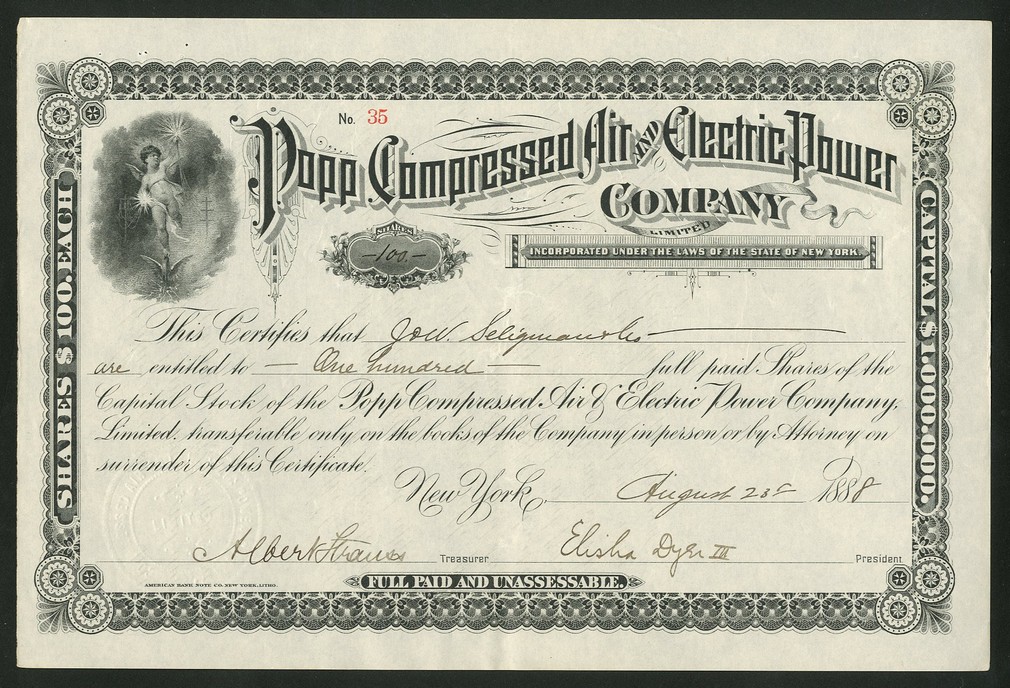 No. 35
Popp Compressed Air AND Electric Power
COMPANY
LIMITED
SHARES
-100.-
INCORPORATED UNDER THE LAWS OF THE STATE OF NEW YORK.
SHARES $100. EACH
CAPITAL $10.000.000.
This Certifies that J & W. Seligman & Co
are entitled to — One hundred — full paid Shares of the
Capital Stock of the Popp Compressed Air & Electric Power Company,
Limited, transferable only on the books of the Company in person or by Attorney on
surrender of this Certificate.
New York, August 23d 1888
Albert Strauss Treasurer Elisha Dyer III President
AMERICAN BANK NOTE CO. NEW YORK, LITHO.
FULL PAID AND UNASSESSABLE.